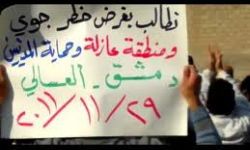 نطالب بفرض حظر جوي
ومنطقة عازلة وحماية المدنيين
دمشق - العسالي
٢٠١١/١١/٢٩